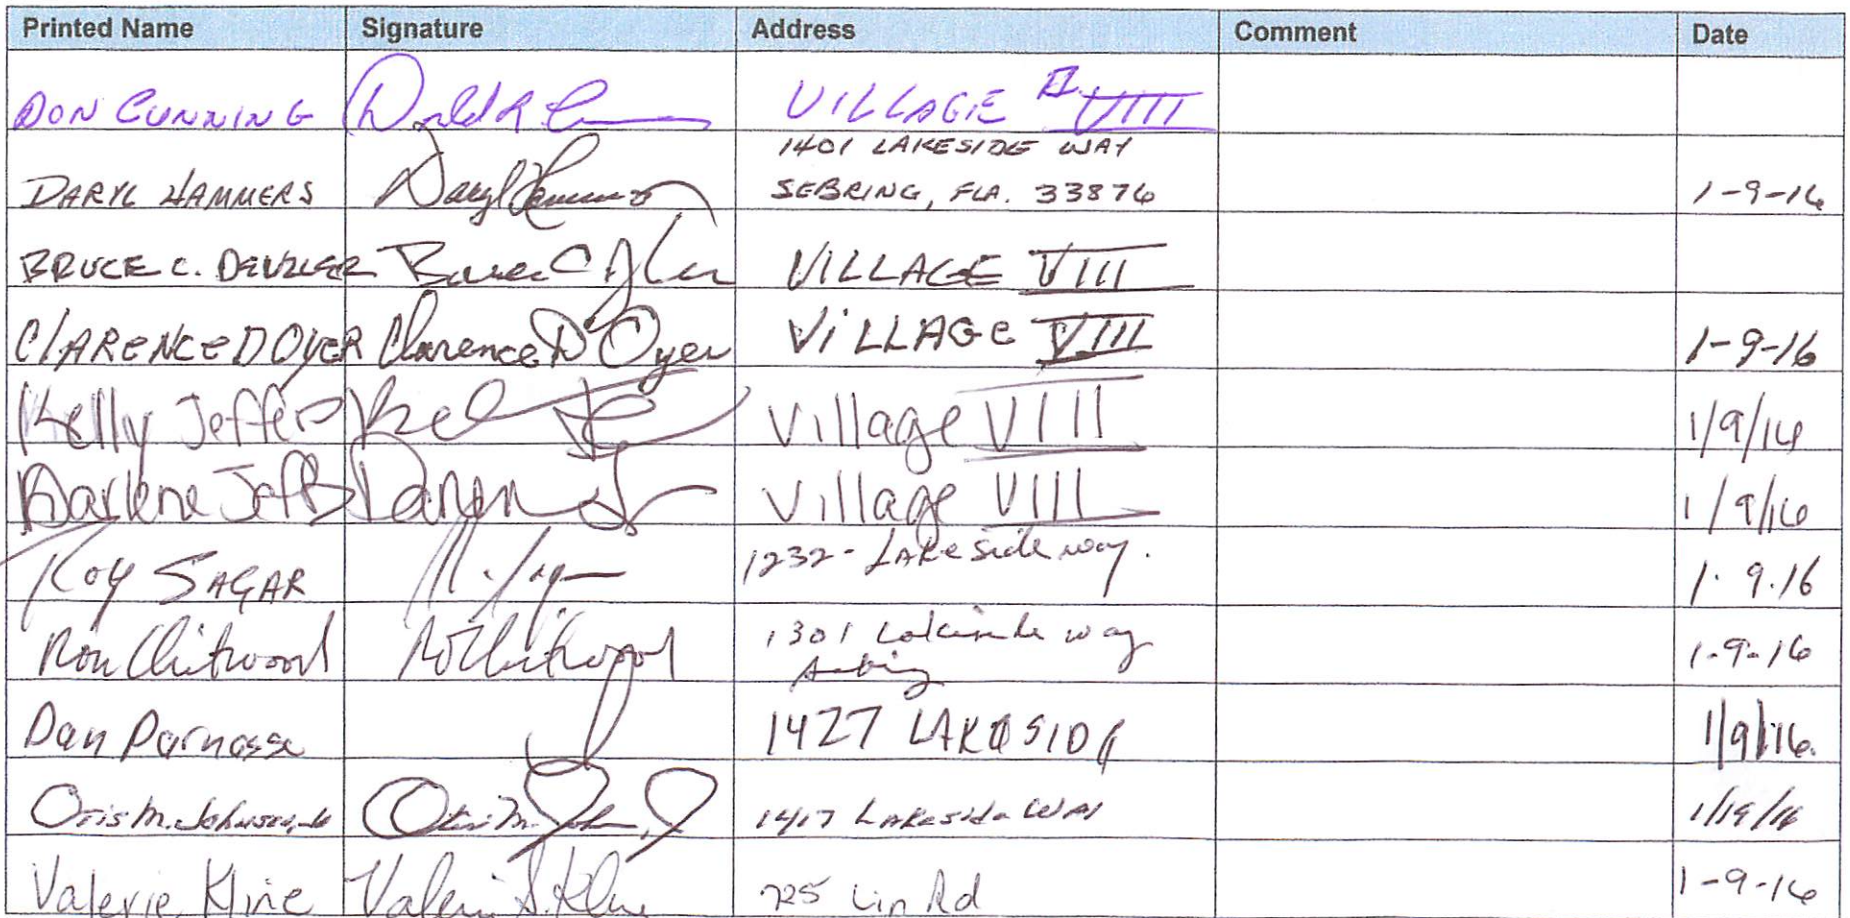 Printed Name Signature Address Comment Date
DON CUNNING Donald R VILLAGE VIII
1401 LAKESIDE WAY
DARYL HAMMERS Daryl Hammers SEBRING, FLA. 33876 1-9-16
BRUCE C. DENZLER Bruce C VILLAGE VIII
CLARENCE D OYER Clarence D Oyer VILLAGE VIII 1-9-16
Kelly Jeffers Village VIII 1/9/16
Darlene Jeffers Village VIII 1/9/16
ROY SAGAR 1232- LAKeside way. 1.9.16
Ron Chitwood R Chitwood 1301 Lakeside way 1-9-16
Sebring
Dan Parnasse 1427 LAKESIDE 1/9/16.
Otis M. Johnson, Jr Otis M. Joh, J 1417 Lakeside WAY
Valerie Kline Valerie S. Kline 725 Lin Rd 1-9-16